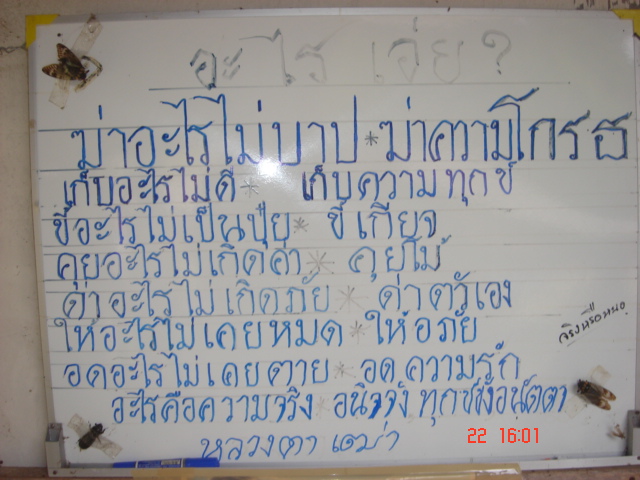 อะไร เอ่ย ?
ฆ่าอะไรไม่บาป * ฆ่าความโกรธ
เก็บอะไรไม่ดี * เก็บความทุกข์
ขี้อะไรไม่เป็นปุ๋ย * ขี้เกียจ
คุยอะไรไม่เกิดค่า * คุยโม้
ด่าอะไรไม่เกิดภัย * ด่าตัวเอง
ให้อะไรไม่เคยหมด * ให้อภัย
อดอะไรไม่เคยตาย * อดความรัก
จริงหรือหนอ
อะไรคือความจริง * อนิจจัง ทุกขัง อนัตตา
หลวงตา
22 16:01